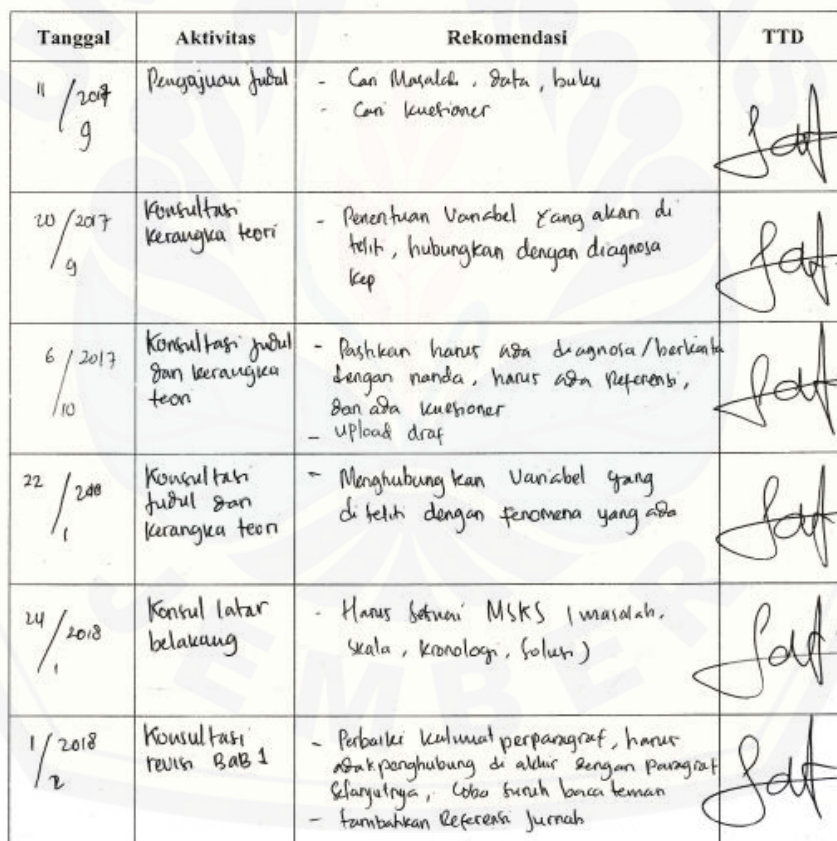 Tanggal Aktivitas Rekomendasi TTD
11/9 2017
Pengajuan Judul
- Cari Masalah, data, buku
- Cari kuesioner
20/9 2017
Konsultasi
kerangka teori
- Penentuan Variabel yang akan di
teliti, hubungkan dengan diagnosa
kep
6/10 2017
Konsultasi judul
dan kerangka
teori
- Pastikan harus ada diagnosa/berkaita
dengan nanda, harus ada Referensi,
dan ada kuesioner
- upload draf
22/1
Konsultasi
judul dan
kerangka teori
- Menghubungkan Variabel yang
di teliti dengan fenomena yang ada
24/1 2018
Konsul latar
belakang
- Harus sesuai MSKS (masalah,
skala, kronologi, solusi)
1/2 2018
Konsultasi
revisi BaB 1
- Perbaiki kalimat perparagraf, harus
penghubung di akhir dengan paragraf
selanjutnya, Coba suruh baca teman
- tambahkan Referensi Jurnal
JEMBER